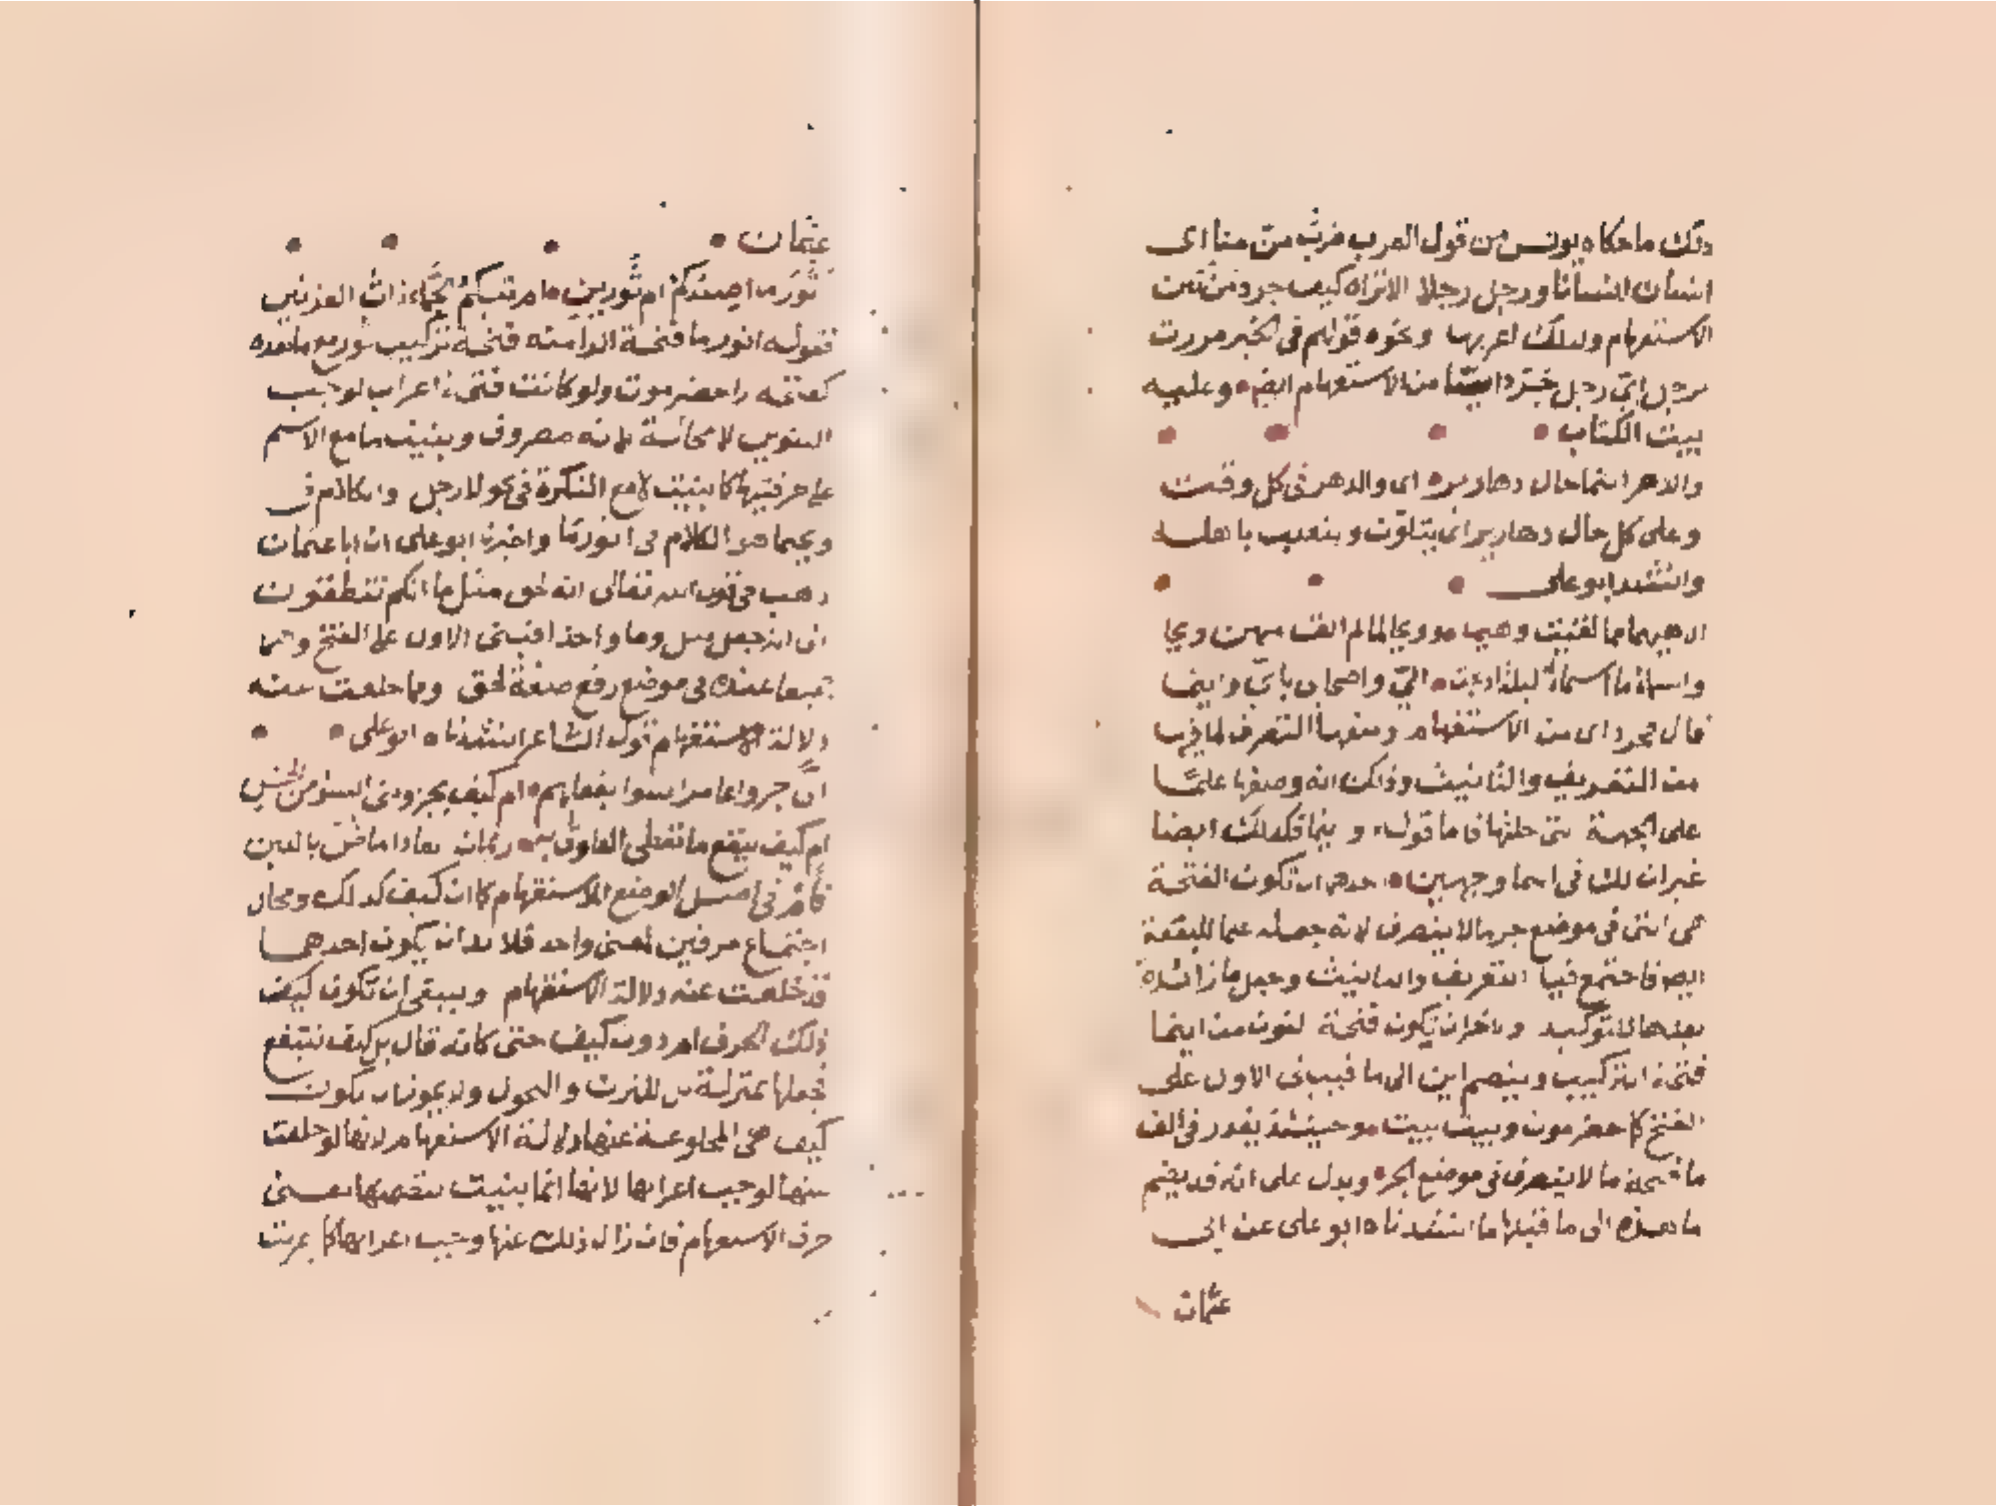 ذلك ما حكاه يونس من قول العرب ضرب منٌ منا اى
انسان انسانا ورجل رجلا الا تراه كيف جرد من من
الاستفهام ولذلك اعربها ونحوه قولهم فى الخبر مررت
برجل اىّ رجل فجرد ايّا من الاستفهام ايضا وعليه
بيت الكتاب
والدهر ايتما حال دهارير اى والدهر فى كل وقت
وعلى كل حال دهارير اى يتلوّن ويتقلب باهله
وانشد ابو على
الا هيما مما لقيت وهيما وويحا لمن لم الق منهن ويحا
واسماء ما اسماء ليلة ادلجت الىّ واصحابى باىّ واينما
قال فجرد اى من الاستفهام ومنعها التصرف لما فيها
من التعريف والتانيث وذلك انه وضعها علما
على الجهة التى حلتها فاما قوله واينما فكذلك ايضا
غير ان لك فى اينما وجهين احدهما ان تكون الفتحة
هى التى فى موضع جر ما لا ينصرف لانه جعله علما للبقعة
ايضا فاجتمع فيها التعريف والتانيث وجعل ما زائدة
بعدها للتوكيد والاخر ان تكون فتحة النون من اينما
فتحة التركيب وينضم اين الى ما فيبنى الاول على
الفتح كما حضرموت وبيت بيت وحينئذ يقدر فى الف
ما فتحة ما لا ينصرف فى موضع الجر ويدل على انه قد يضم
ما هذه الى ما قبلها ما انشدناه ابو على عن ابى
عثمان
عثمان
اثور ما اصيدكم ام ثورين ام تيكم الجماء ذات القرنين
فقوله اثور ما فتحة الراء منه فتحة تركيب ثور مع ما بعده
كفتحة راء حضرموت ولو كانت فتحة اعراب لوجب
التنوين لا محالة لانه مصروف وبنيت ما مع الاسم
على حرفيتها كما بنيت لا مع النكرة فى نحو لا رجل والكلام فى
ويحما هو الكلام فى اثور ما واخبرنا ابو على ان ابا عثمان
ذهب فى قول الله تعالى انه لحق مثل ما انكم تنطقون
الى انه جعل مثل وما واحدا فبنى الاول على الفتح وهما
جميعا عنده فى موضع رفع صفة لحق ومما خلعت عنه
دلالة الاستفهام قول الشاعر انشدناه ابو على
انّى جزوا عامرا سوا بفعلهم ام كيف يجزوننى السوءى من الحسن
ام كيف ينفع ما تعطى العلوق به رئمان انف اذا ما ضن باللبن
فام فى اصل الوضع للاستفهام كما ان كيف كذلك ومحال
اجتماع حرفين لمعنى واحد فلا بد ان يكون احدهما
قد خلعت عنه دلالة الاستفهام وينبغى ان تكون كيف
ذلك الحرف ام دون كيف حتى كانه قال بل كيف ينفع
فجعلها بمنزلة بل للترك والتحول ولا يجوز ان تكون
كيف هى المخلوعة عنها دلالة الاستفهام لانها لو خلعت
عنها لوجب اعرابها لانها انما بنيت لتضمنها معنى
حرف الاستفهام فاذا زال ذلك عنها وجب اعرابها كما اعربت